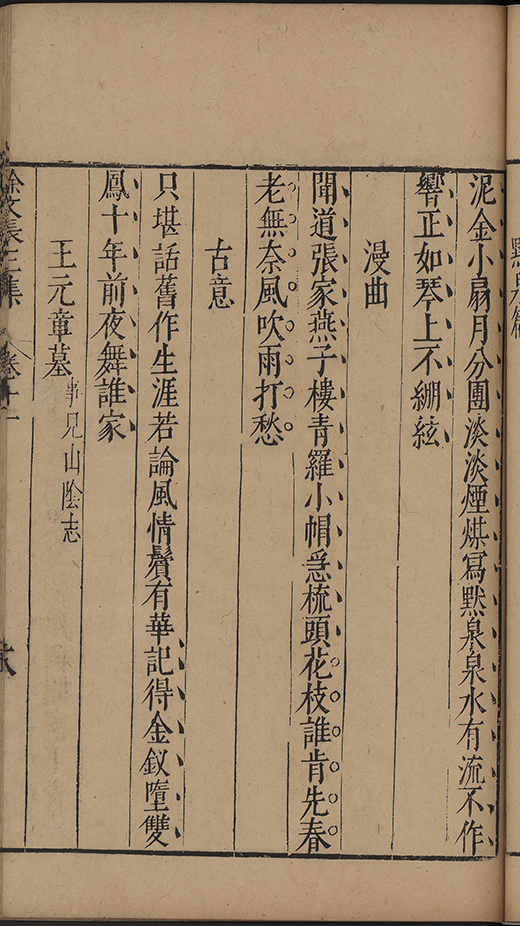 泥金小扇月分團淡淡煙煤寫默泉泉水有流不作
響正如琴上不綳絃
漫曲
聞道張家燕子樓青羅小帽急梳頭花枝誰肯先春
老無奈風吹雨打愁
古意
只堪話舊作生涯若論風情鬢有華記得金釵墮雙
鳳十年前夜舞誰家
王元章墓 事見山陰志
徐文長三集 卷十一